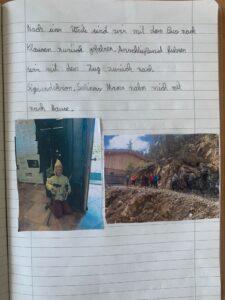 Nach einer Weile sind wir mit dem Bus nach
Klausen zurück gefahren. Anschließend fuhren
wir mit dem Zug zurück nach
Sigmundskron. Selinas Mama nahm mich mit
nach Hause.